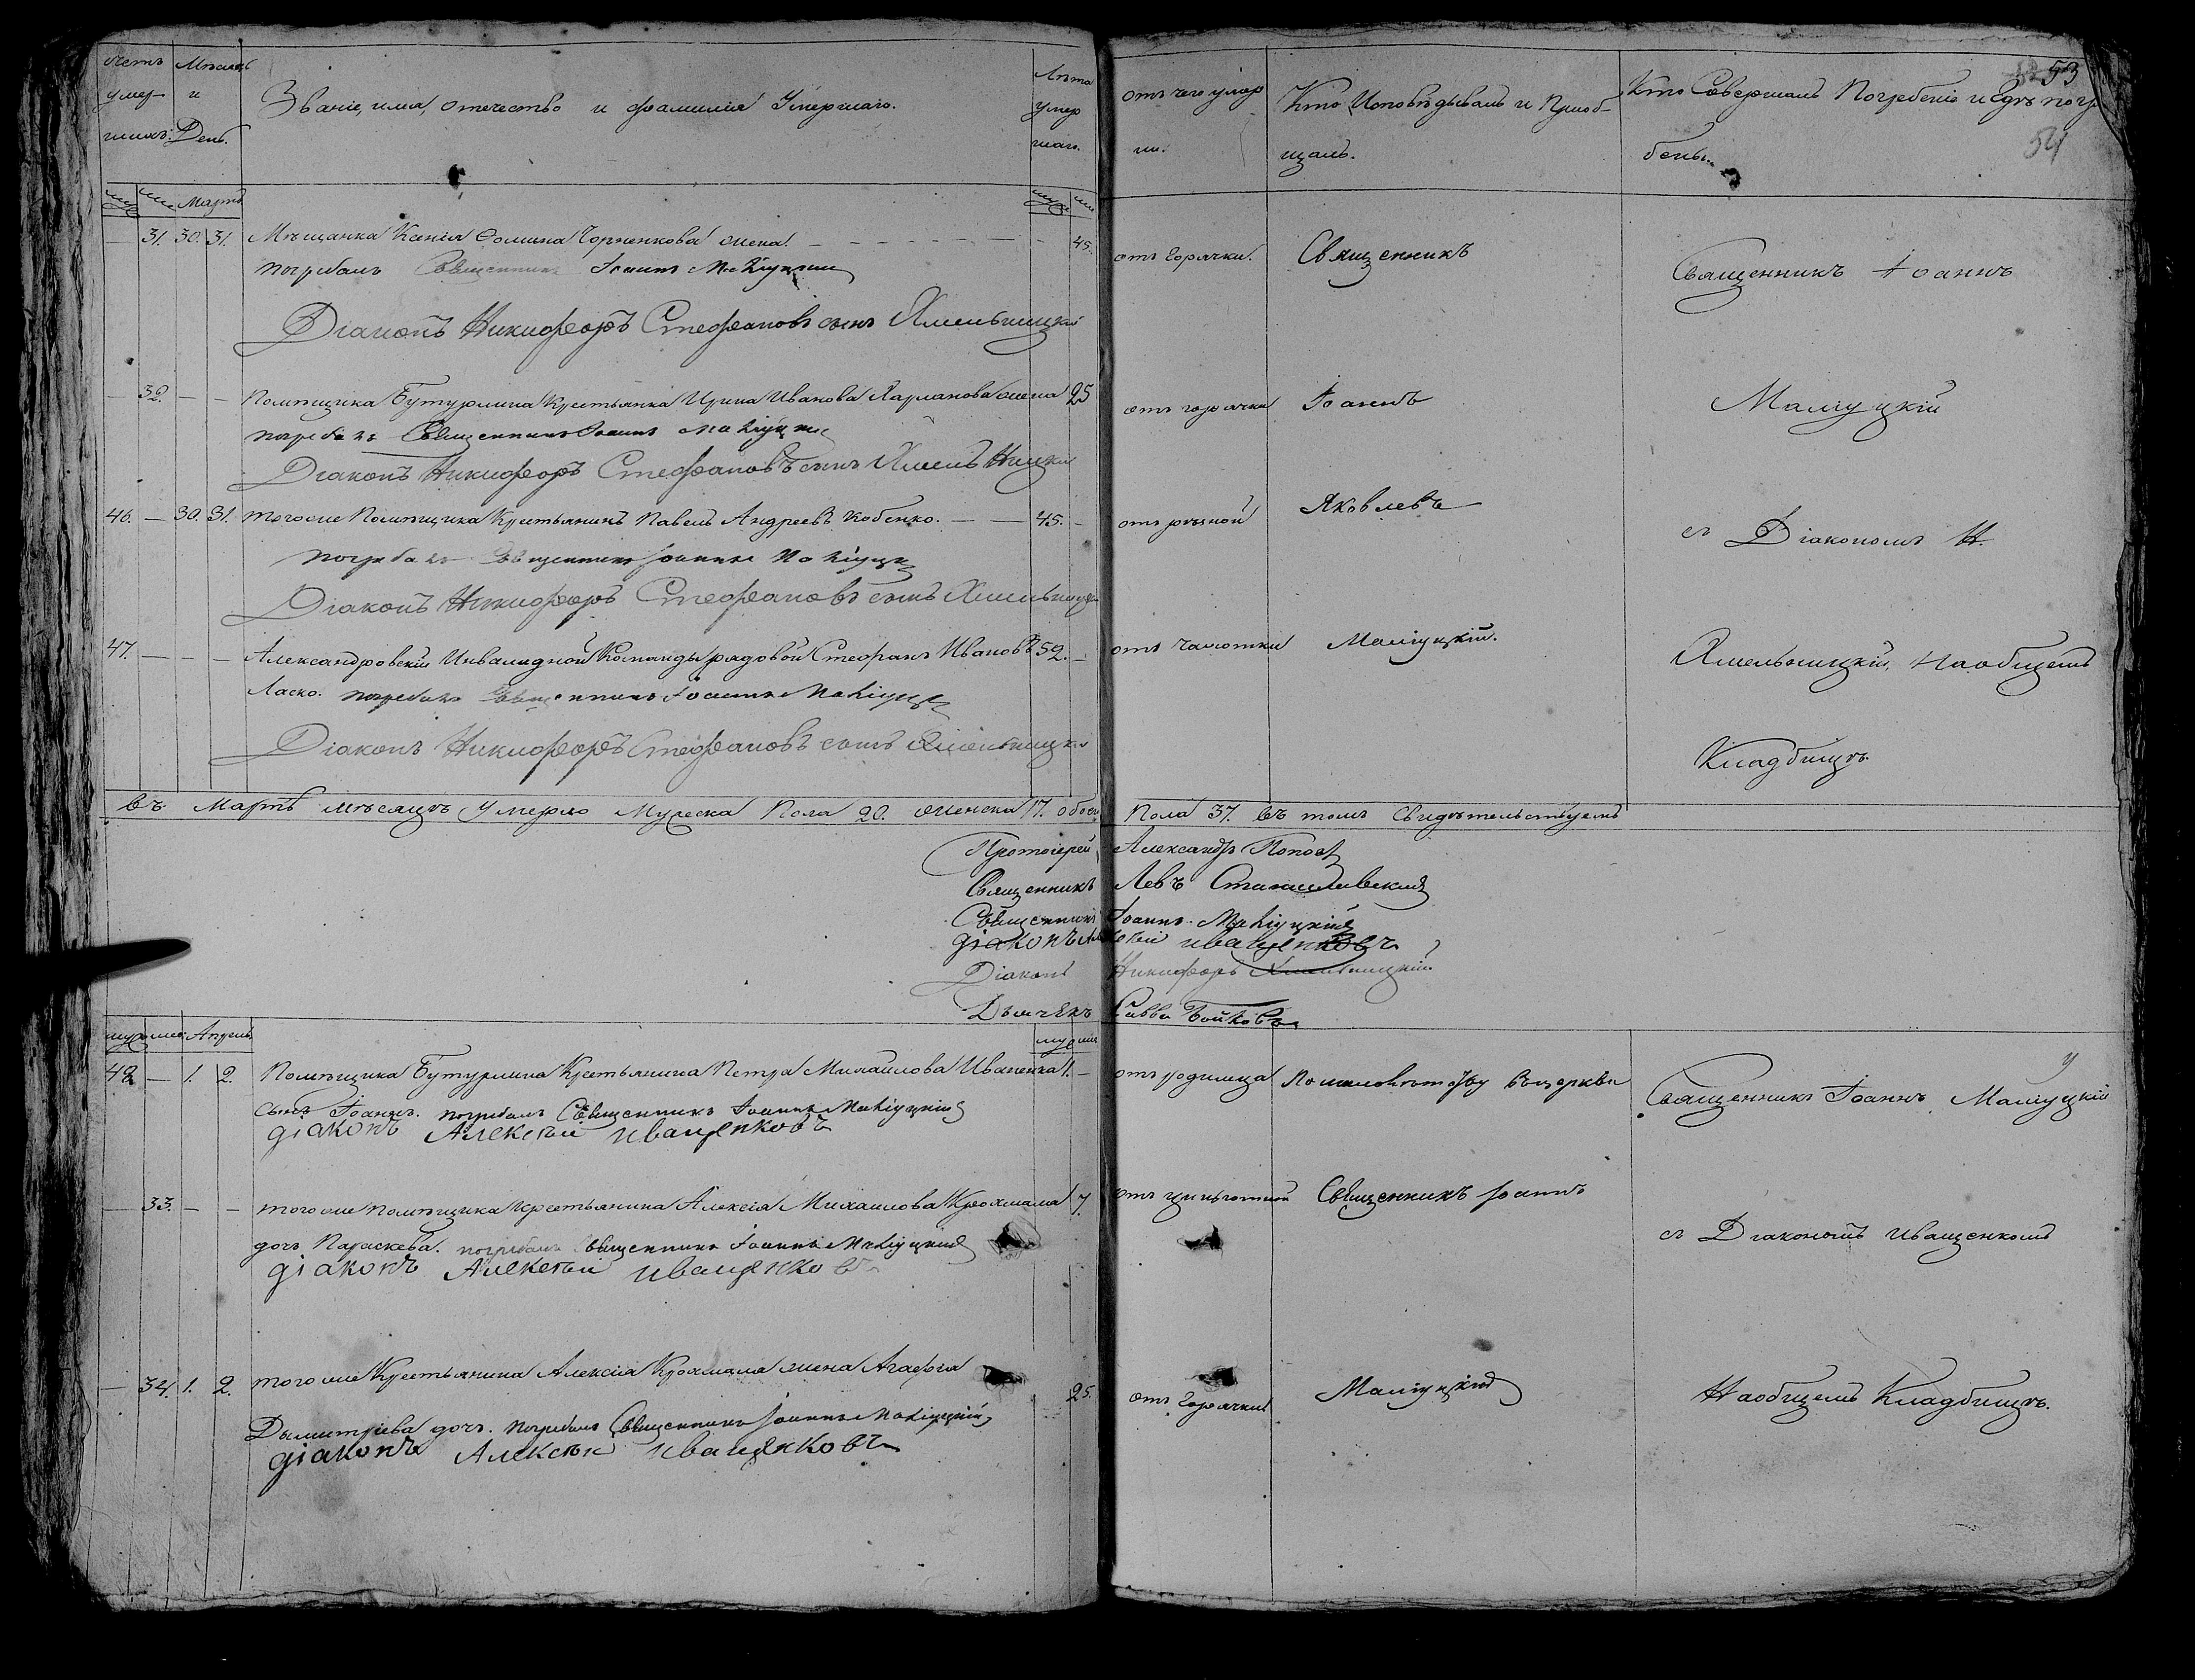 Счетъ умер-шихъ.
Мѣсяцъ и День.
Званіе, имя, отечество и фамилія Умершаго.
Лѣта умер шаго.
отъ чего умер ли.
Кто Исповѣдывалъ и Пріоб-
щалъ.
Кто Совершалъ Погребеніе и Гдѣ погре
бены.
53
54
муж жен Мартъ муж жен
— 31. 30. 31. Мѣщанка Ксенія Фомина Чорненкова жена. — 45.
отъ Горячки. Священникъ
Священникъ Іоаннъ
погребалъ Священникъ Іоаннъ Маліуцкій
Діаконъ Никифоръ Стефановъ сынъ Хмельницкій
— 32. — — Помѣщика Бутурлина Крестьянка Ирина Иванова Харланова жена 25
отъ горячки Іоаннъ
Маліуцкій
погребалъ Священникъ Іоаннъ Маліуцкій
Діаконъ Никифоръ Стефановъ сынъ Хмельницкій
46. — 30. 31. тогоже Помѣщика Крестьянинъ Павелъ Андреевъ Кобенко. — — 45. —
отъ рѣзной Яковлевъ
съ Діакономъ Н.
погребалъ Священникъ Іоаннъ Маліуцкій
Діаконъ Никифоръ Стефановъ сынъ Хмельницкій
47. — — — Александровской Инвалидной Команды рядовой Стефанъ Ивановъ 52. —
отъ чахотки Маліуцкій.
Хмельницкій, Наобщемъ
Ласко. погребалъ Священникъ Іоаннъ Маліуцкій
Діаконъ Никифоръ Стефановъ сынъ Хмельницкій
Кладбищѣ.
Въ Мартѣ мѣсяцѣ умерло Мужеска Пола 20. женска 17. обоего Пола 37. въ томъ Свидѣтельствуемъ
Протоіерей Александръ Поповъ
Священникъ Левъ Станиславскій
Священникъ Іоаннъ Маліуцкій
діаконъ Алексѣй иващенковъ
Діаконъ Никифоръ Хмельницкій
Дьячекъ Савва Бойковъ
муж жен Апрель муж жен
48 — 1. 2. Помѣщика Бутурлина Крестьянина Петра Михайлова Иваненка 1. —
отъ родимца
Священникъ Іоаннъ Маліуцкій
сынъ Іоаннъ. погребалъ Священникъ Іоаннъ Маліуцкій
діаконъ Алексѣй иващенковъ
— 33. — — тогоже помѣщика Крестьянина Алексія Михаилова Крохмала 7.
отъ цынготной Священникъ Іоаннъ
съ Діакономъ Иващенкомъ
дочь Параскева. погребалъ Священникъ Іоаннъ Маліуцкій
діаконъ Алексѣй иващенковъ
— 34. 1. 2. тогоже Крестьянина Алексія Крохмала жена Агафія 25.
отъ Горячки Маліуцкій
Наобщемъ Кладбищѣ.
Дымитріева дочь. погребалъ Священникъ Іоаннъ Маліуцкій
діаконъ Алексѣй иващенковъ